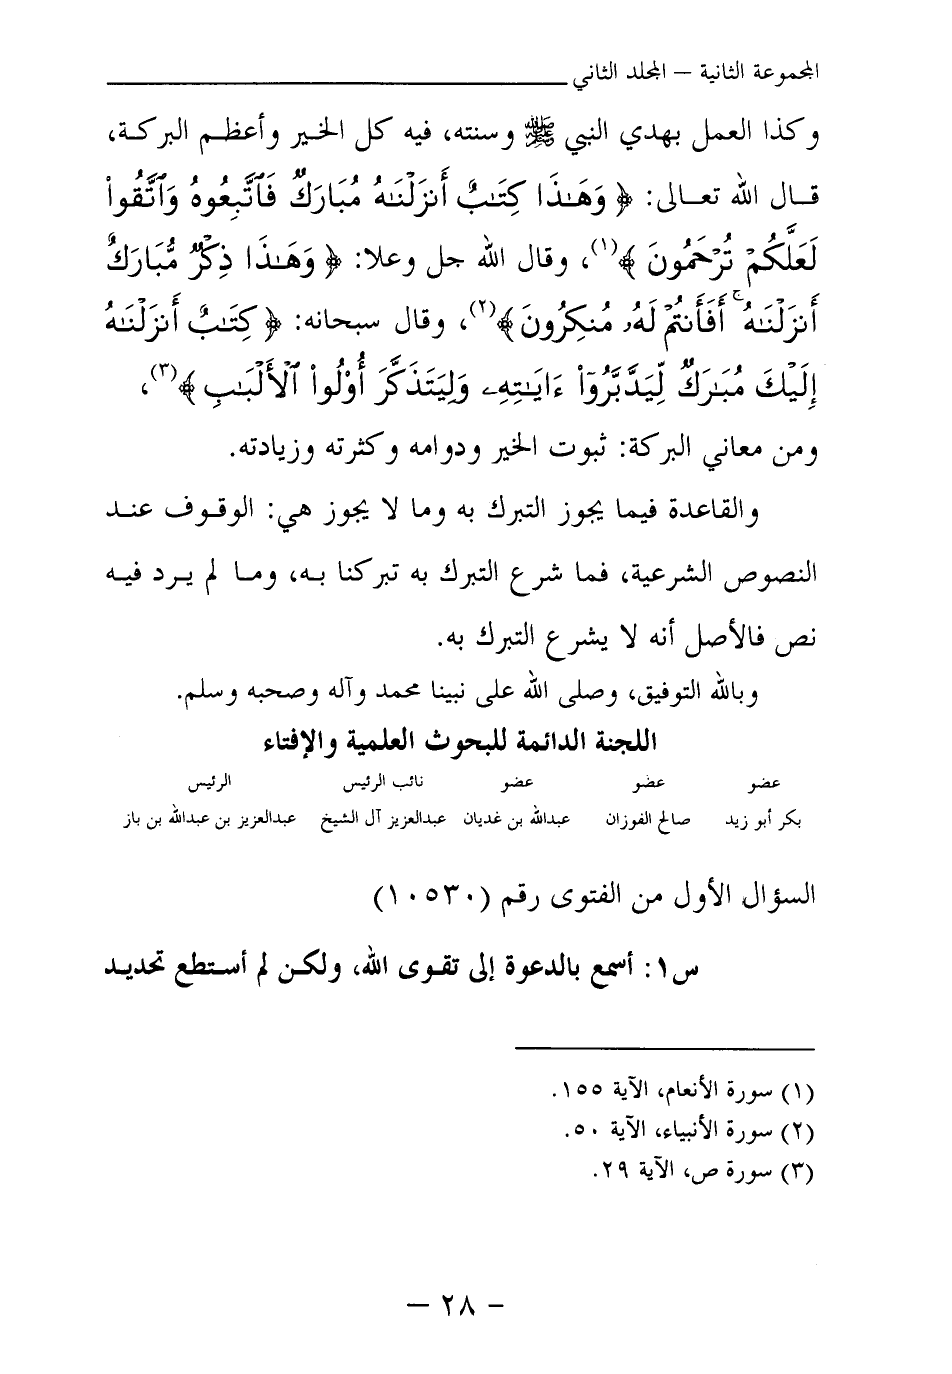 المجموعة الثانية – المجلد الثاني
وكذا العمل بهدي النبي ﷺ وسنته، فيه كل الخير وأعظم البركة،
قال الله تعالى: ﴿ وَهَـٰذَا كِتَـٰبٌ أَنزَلْنَـٰهُ مُبَارَكٌ فَٱتَّبِعُوهُ وَٱتَّقُوا۟
لَعَلَّكُمْ تُرْحَمُونَ ﴾(١)، وقال الله جل وعلا: ﴿ وَهَـٰذَا ذِكْرٌ مُّبَارَكٌ
أَنزَلْنَـٰهُ ۚ أَفَأَنتُمْ لَهُۥ مُنكِرُونَ ﴾(٢)، وقال سبحانه: ﴿ كِتَـٰبٌ أَنزَلْنَـٰهُ
إِلَيْكَ مُبَـٰرَكٌ لِّيَدَّبَّرُوٓا۟ ءَايَـٰتِهِۦ وَلِيَتَذَكَّرَ أُو۟لُوا۟ ٱلْأَلْبَـٰبِ ﴾(٣)،
ومن معاني البركة: ثبوت الخير ودوامه وكثرته وزيادته.
والقاعدة فيما يجوز التبرك به وما لا يجوز هي: الوقوف عند
النصوص الشرعية، فما شرع التبرك به تبركنا به، وما لم يرد فيه
نص فالأصل أنه لا يشرع التبرك به.
وبالله التوفيق، وصلى الله على نبينا محمد وآله وصحبه وسلم.
اللجنة الدائمة للبحوث العلمية والإفتاء
عضو عضو عضو نائب الرئيس الرئيس
بكر أبو زيد صالح الفوزان عبدالله بن غديان عبدالعزيز آل الشيخ عبدالعزيز بن عبدالله بن باز
السؤال الأول من الفتوى رقم (١٠٥٣٠)
س١: أسمع بالدعوة إلى تقوى الله، ولكن لم أستطع تحديد
(١) سورة الأنعام، الآية ١٥٥.
(٢) سورة الأنبياء، الآية ٥٠.
(٣) سورة ص، الآية ٢٩.
- ٢٨ –